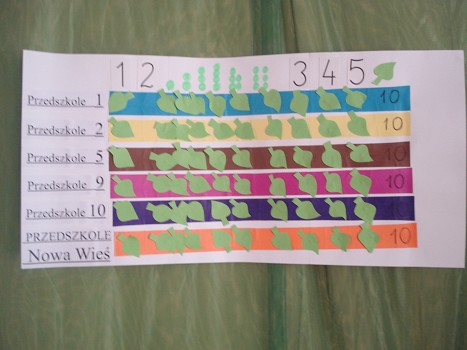 1 2 3 4 5
Przedszkole 1 10
Przedszkole 2 10
Przedszkole 5 10
Przedszkole 9 10
Przedszkole 10 10
PRZEDSZKOLE 10
Nowa Wieś